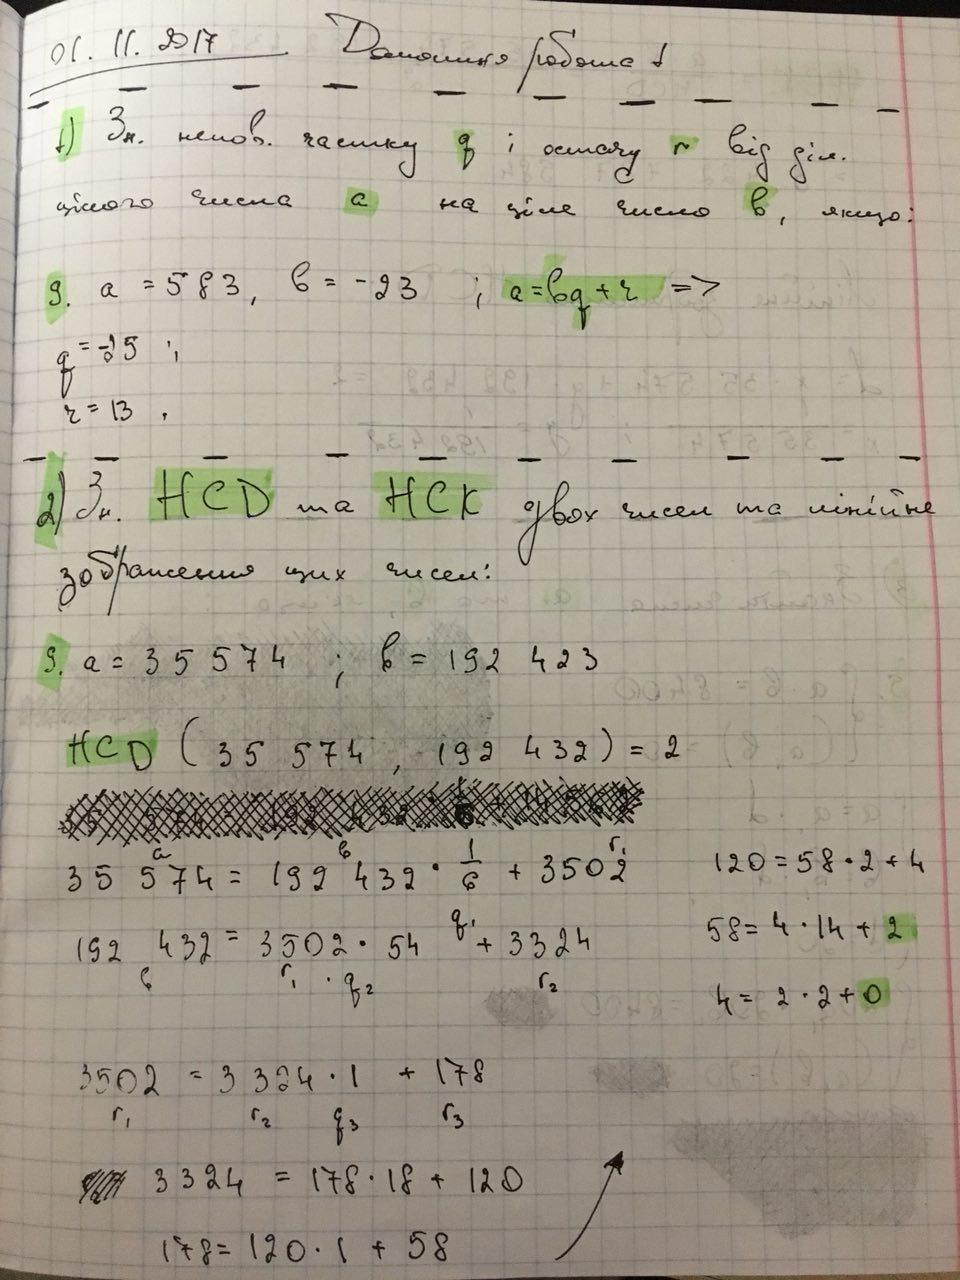 01.11.2017 Домашня робота 1
1) Зн. непов. частку q і остачу r від діл.
цілого числа a на ціле число b, якщо:
9. a = 583, b = -23 ; a=bq+r =>
q = -25 ;
r = 13 .
2) Зн. НСD та НСК двох чисел та лінійне
зображення цих чисел:
9. a = 35 574 ; b = 192 423
НСD (35 574, 192 432) = 2
a b r₁
35 574 = 192 432 · 1/6 + 3502
q₁
192 432 = 3502 · 54 + 3324
b r₁ · q₂ r₂
3502 = 3324 · 1 + 178
r₁ r₂ q₃ r₃
3324 = 178 · 18 + 120
178 = 120 · 1 + 58
120 = 58 · 2 + 4
58 = 4 · 14 + 2
4 = 2 · 2 + 0